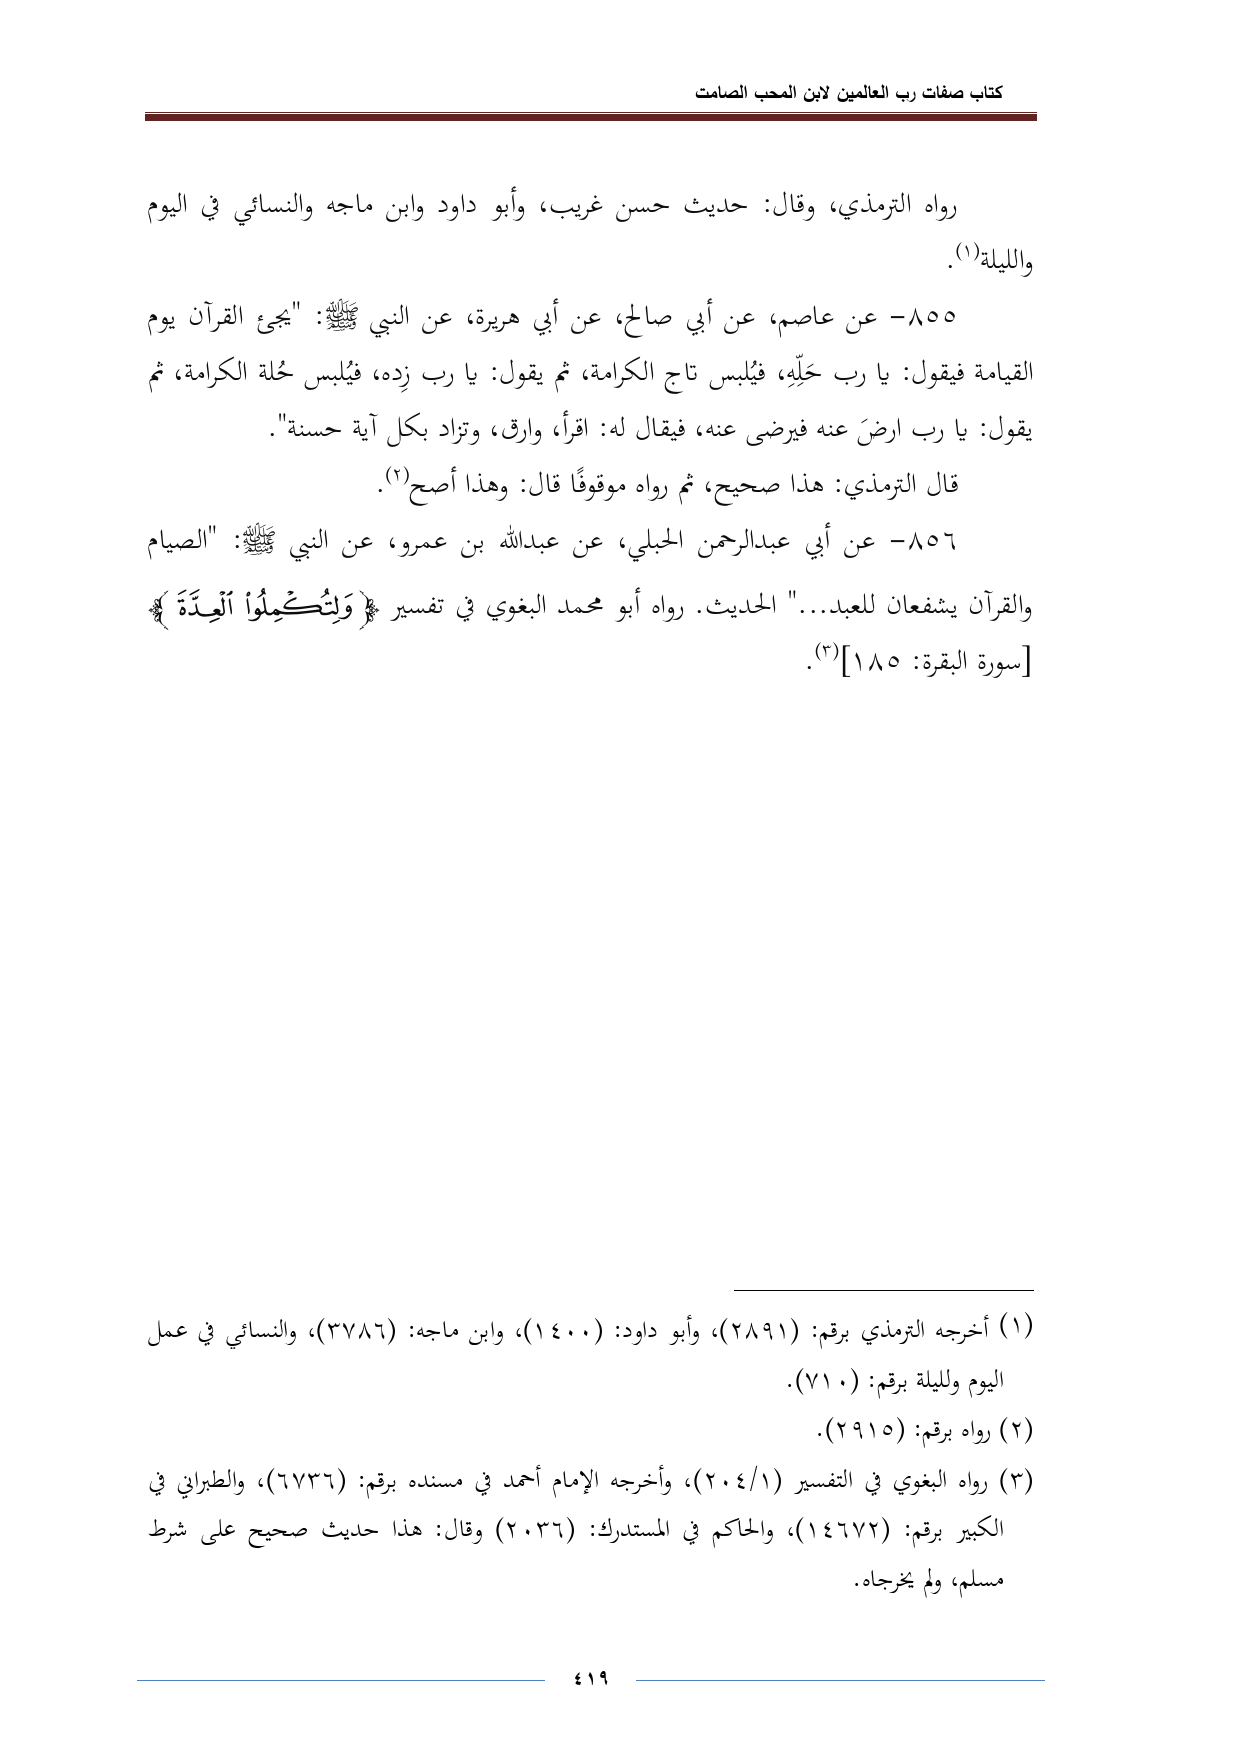 كتاب صفات رب العالمين لابن المحب الصامت
رواه الترمذي، وقال: حديث حسن غريب، وأبو داود وابن ماجه والنسائي في اليوم
والليلة(١).
٨٥٥- عن عاصم، عن أبي صالح، عن أبي هريرة، عن النبي ﷺ: "يجئ القرآن يوم
القيامة فيقول: يا رب حَلِّهِ، فيُلبس تاج الكرامة، ثم يقول: يا رب زِده، فيُلبس حُلة الكرامة، ثم
يقول: يا رب ارضَ عنه فيرضى عنه، فيقال له: اقرأ، وارق، وتزاد بكل آية حسنة".
قال الترمذي: هذا صحيح، ثم رواه موقوفًا قال: وهذا أصح(٢).
٨٥٦- عن أبي عبدالرحمن الحبلي، عن عبدالله بن عمرو، عن النبي ﷺ: "الصيام
والقرآن يشفعان للعبد..." الحديث. رواه أبو محمد البغوي في تفسير ﴿ وَلِتُكۡمِلُواْ ٱلۡعِدَّةَ ﴾
[سورة البقرة: ١٨٥](٣).
(١) أخرجه الترمذي برقم: (٢٨٩١)، وأبو داود: (١٤٠٠)، وابن ماجه: (٣٧٨٦)، والنسائي في عمل
اليوم ولليلة برقم: (٧١٠).
(٢) رواه برقم: (٢٩١٥).
(٣) رواه البغوي في التفسير (٢٠٤/١)، وأخرجه الإمام أحمد في مسنده برقم: (٦٧٣٦)، والطبراني في
الكبير برقم: (١٤٦٧٢)، والحاكم في المستدرك: (٢٠٣٦) وقال: هذا حديث صحيح على شرط
مسلم، ولم يخرجاه.
٤١٩